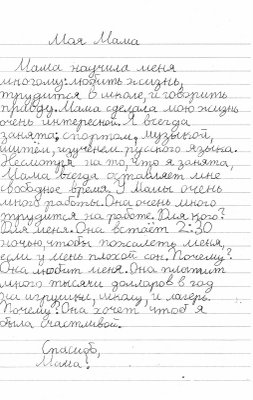 Моя Мама
Мама научила меня
многому: любить жизнь,
трудится в школе, и говорить
правду. Мама сделала мою жизнь
очень интересной. Я всегда
занята; спортом, музыкой,
шитём, изученем руского языка.
Несмотря на то, что я занята,
Мама всегда оставляет мне
свободное время. У Мамы очень
много работы. Она очень много
трудится на работе. Для кого?
Для меня. Она встаёт 2:30
ночью, чтобы пожалеть меня,
если у мень плохой сон. Почему?
Она любит меня. Она платит
много тысячи долларов в год
на игрушки, школу, и лагерь.
Почему? Она хочет чтоб я
была счастливой.
Спасибо,
Мама!